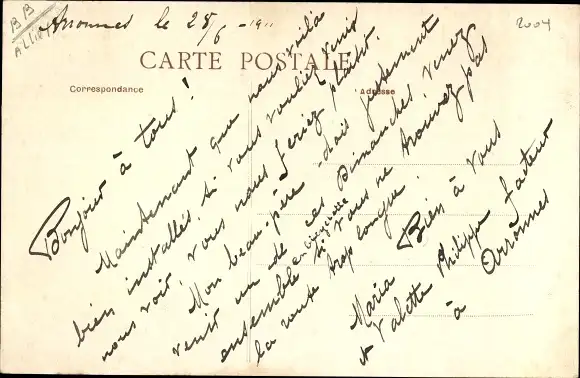 BB
ALLIER
Arronnes le 28/6 - 1911
2004
CARTE POSTALE
Correspondance
Adresse
Bonjour à tous!
Maintenant que nous voilà
bien installés, si vous vouliez venir
nous voir, vous nous feriez plaisir.
Mon beau-père doit justement
venir un de ces Dimanches, venez
ensemble en voiture si vous ne trouvez pas
la route trop longue.
Bien à vous
Maria
et Valette Philippe facteur
à Arronnes